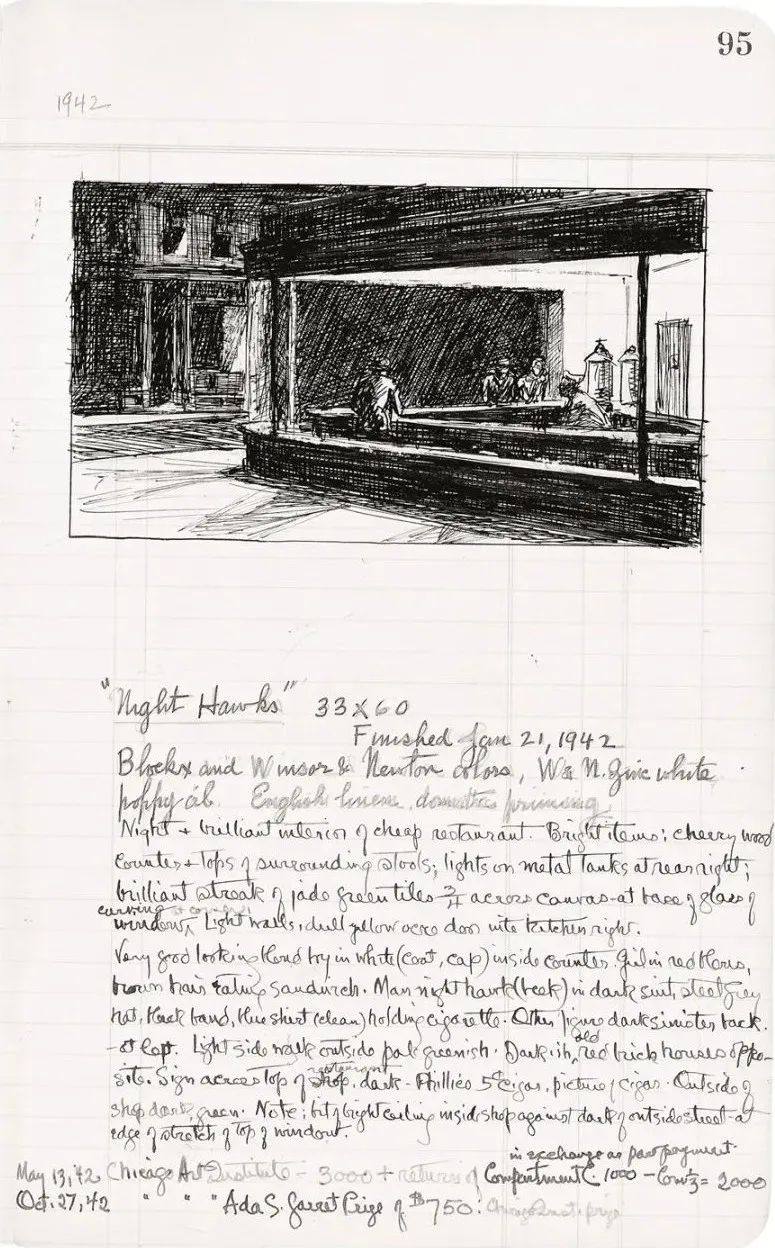 95
1942
"Night Hawks" 33 X 60
Finished Jan 21, 1942
Blockx and Winsor & Newton colors, W & N. Zinc white
poppy oil. English linen, domestic priming
Night + brilliant interior of cheap restaurant. Bright items: cherry wood
counter + tops of surrounding stools; lights on metal tanks at rear right;
brilliant streak of jade green tiles 3/4 across canvas - at base of glass of
curving
window. Light walls, dull yellow ocre door into kitchen right.
Very good looking blond boy in white (coat, cap) inside counter. Girl in red blouse,
brown hair eating sandwich. Man night hawk (beak) in dark suit, steel grey
hat, black band, blue shirt (clean) holding cigarette. Other figure dark sinister back
- at left. Light side walk outside pale greenish. Darkish, old red brick houses oppo-
site. Sign across top of restaurant shop, dark - Phillies 5¢ cigar, picture of cigar. Outside of
shop dark green. Note: bit of bright ceiling inside shop against dark of outside street - at
edge of stretch of top of window.
in exchange as part payment
May 13, '42 Chicago Art Institute - 3000 + return of Compartment C. 1000 - Com 1/3 = 2000
Oct. 27, '42 " " " Ada S. Garret Prize of $750.